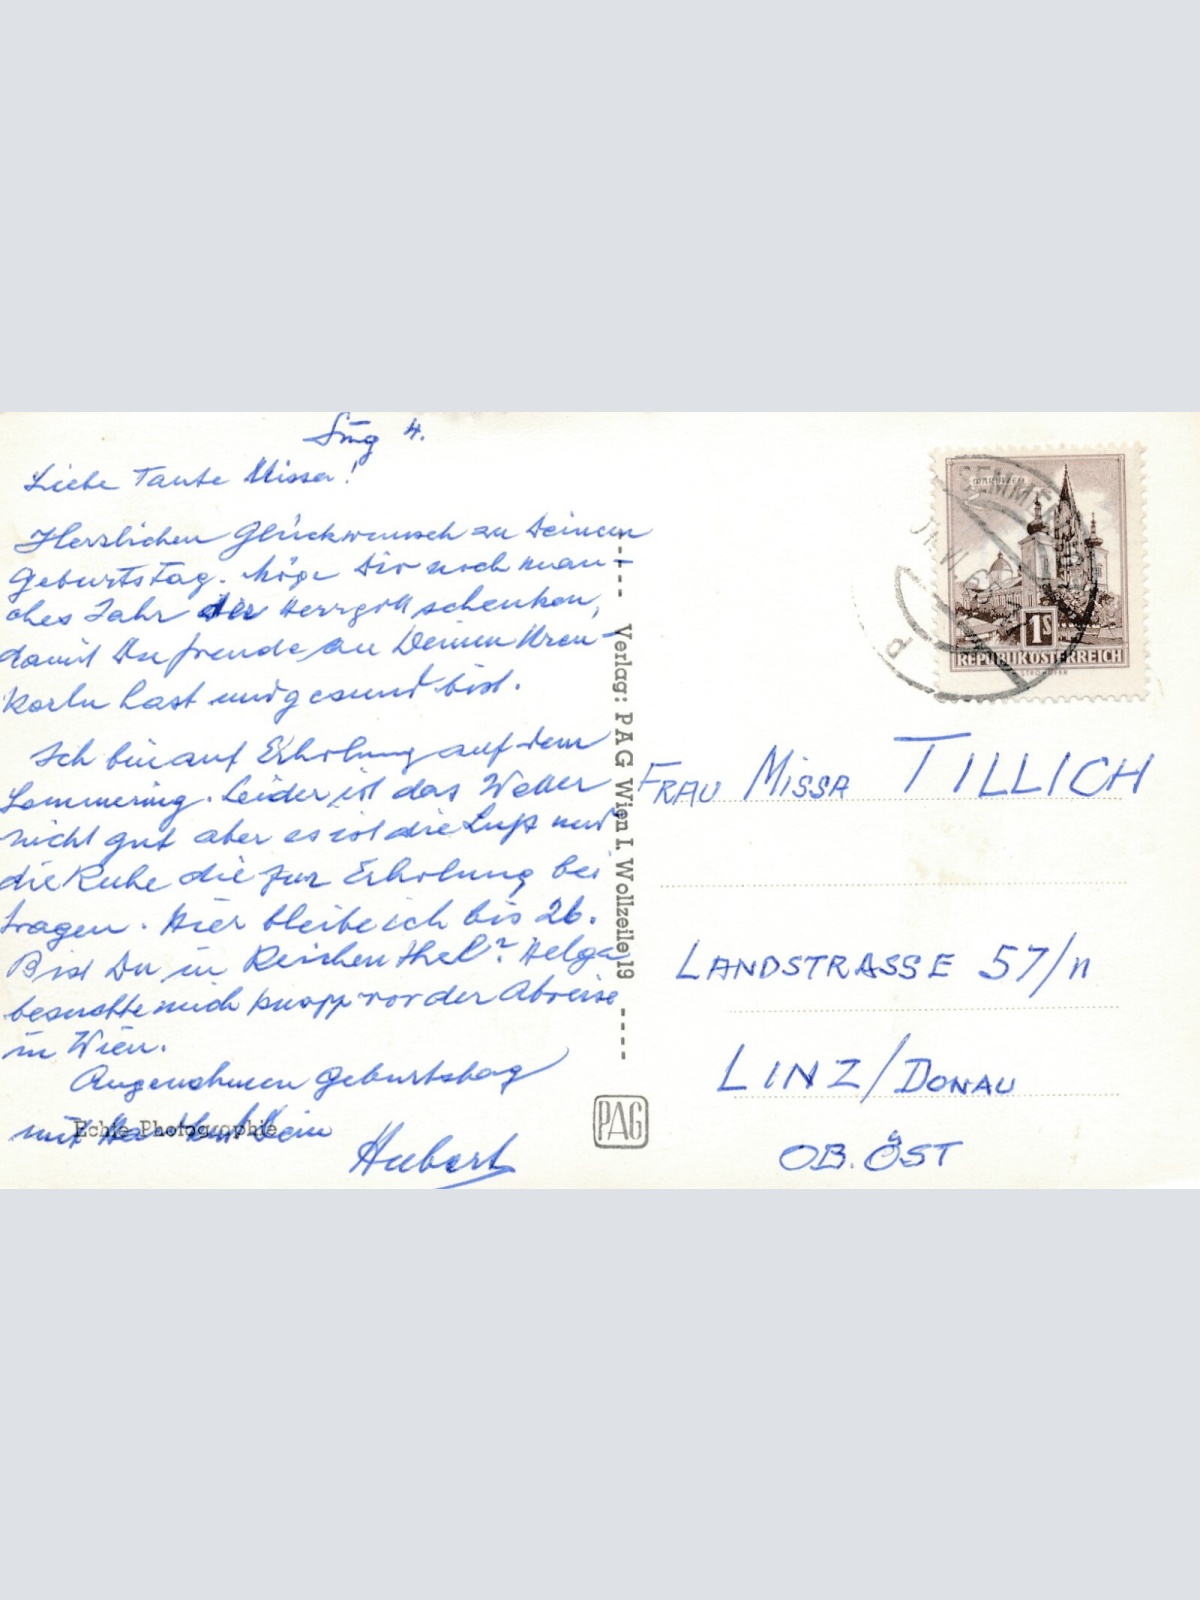 4.
Liebe Tante Missa!
Herzlichen Glückwunsch zu Deinem
Geburtstag. Möge Dir noch man-
ches Jahr der Herrgott schenken,
damit Du freude an Deinen Uren-
kerln hast und gesund bist.
Ich bin auf Erholung auf dem
Semmering. Leider ist das Wetter
nicht gut aber es ist die Luft und
die Ruhe die zur Erholung bei
tragen. Hier bleibe ich bis 26.
Bist Du in Reichenthal? Helga
besuchte mich knapp vor der Abreise
in Wien.
Angenehmen Geburtstag
mit Dein
Hubert
Echte Photographie
Verlag: PAG Wien I. Wollzeile 19
PAG
SEMMERING
MARIAZELL
1S
REPUBLIK ÖSTERREICH
FRAU MISSA TILLICH
LANDSTRASSE 57/II
LINZ/DONAU
OB. ÖST